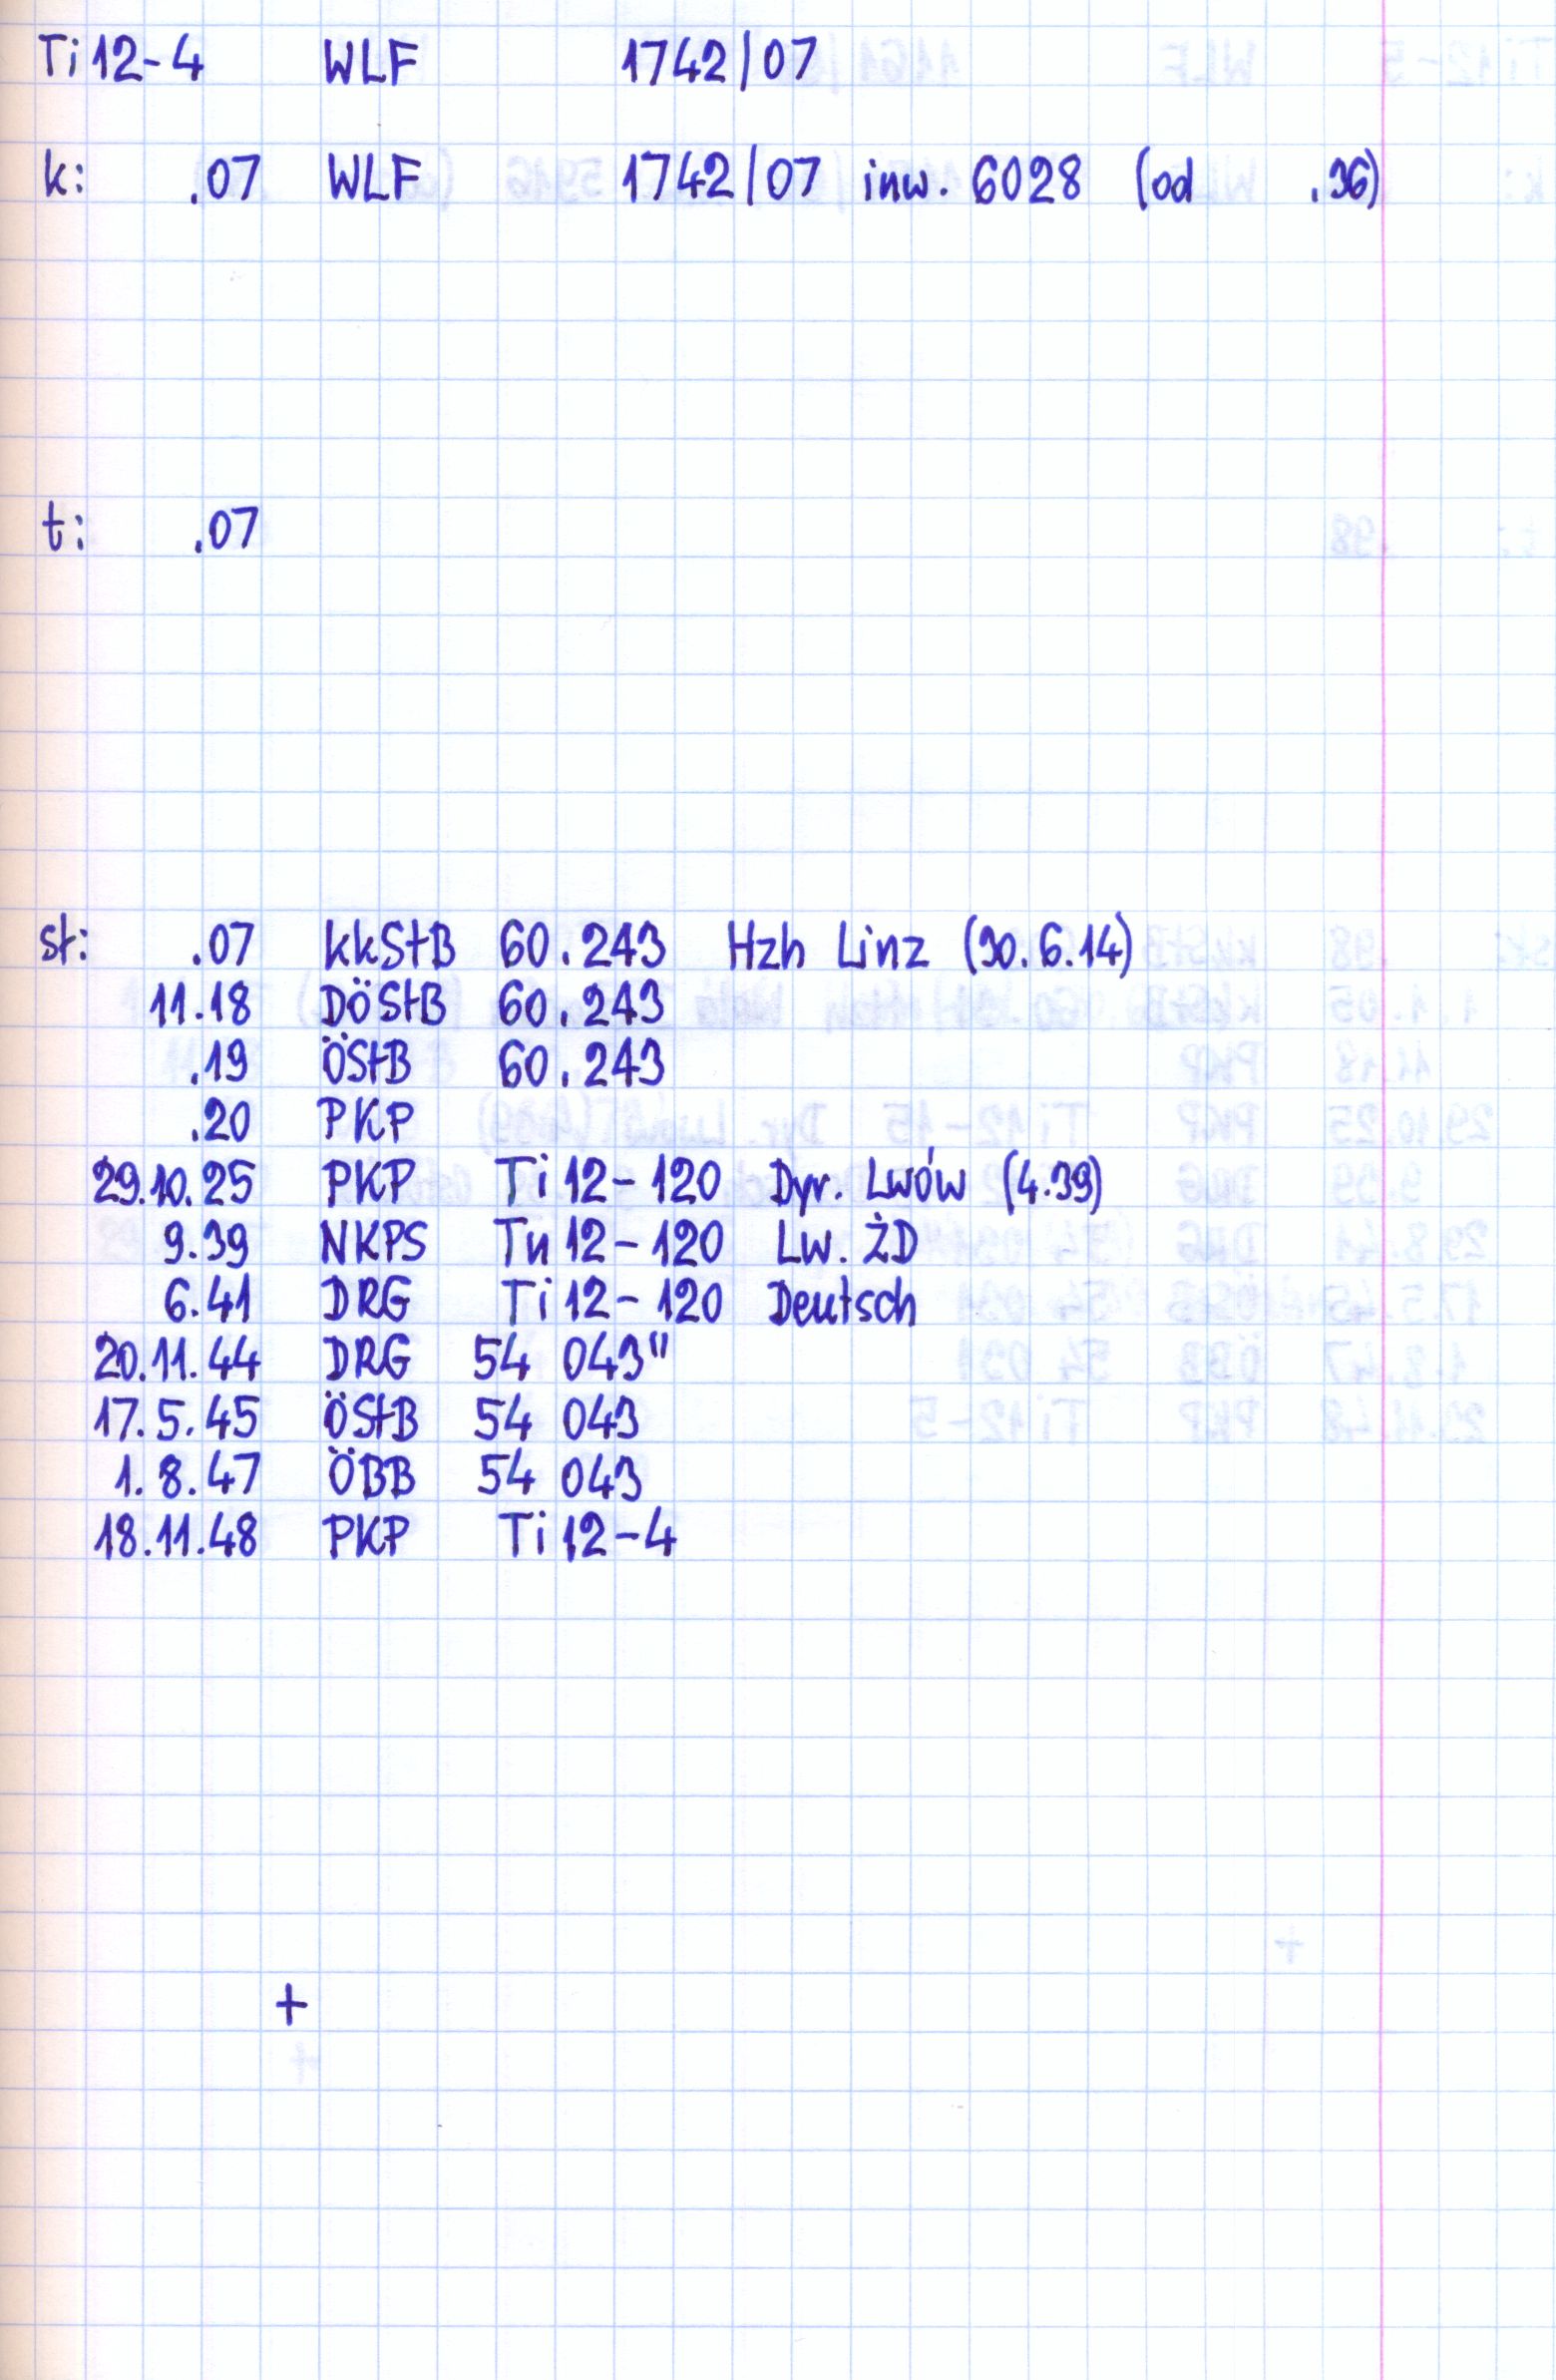 Ti 12-4 WLF 1742/07
k: .07 WLF 1742/07 inw. 6028 (od .36)
t: .07
st: .07 kkStB 60.243 Hzh Linz (30.6.14)
11.18 DÖStB 60.243
.19 ÖStB 60.243
.20 PKP
29.10.25 PKP Ti 12-120 Dyr. Lwów (4.39)
9.39 NKPS Tu 12-120 Lw. ŻD
6.41 DRG Ti 12-120 Deutsch
20.11.44 DRG 54 043"
17.5.45 ÖStB 54 043
1.8.47 ÖBB 54 043
18.11.48 PKP Ti 12-4
+